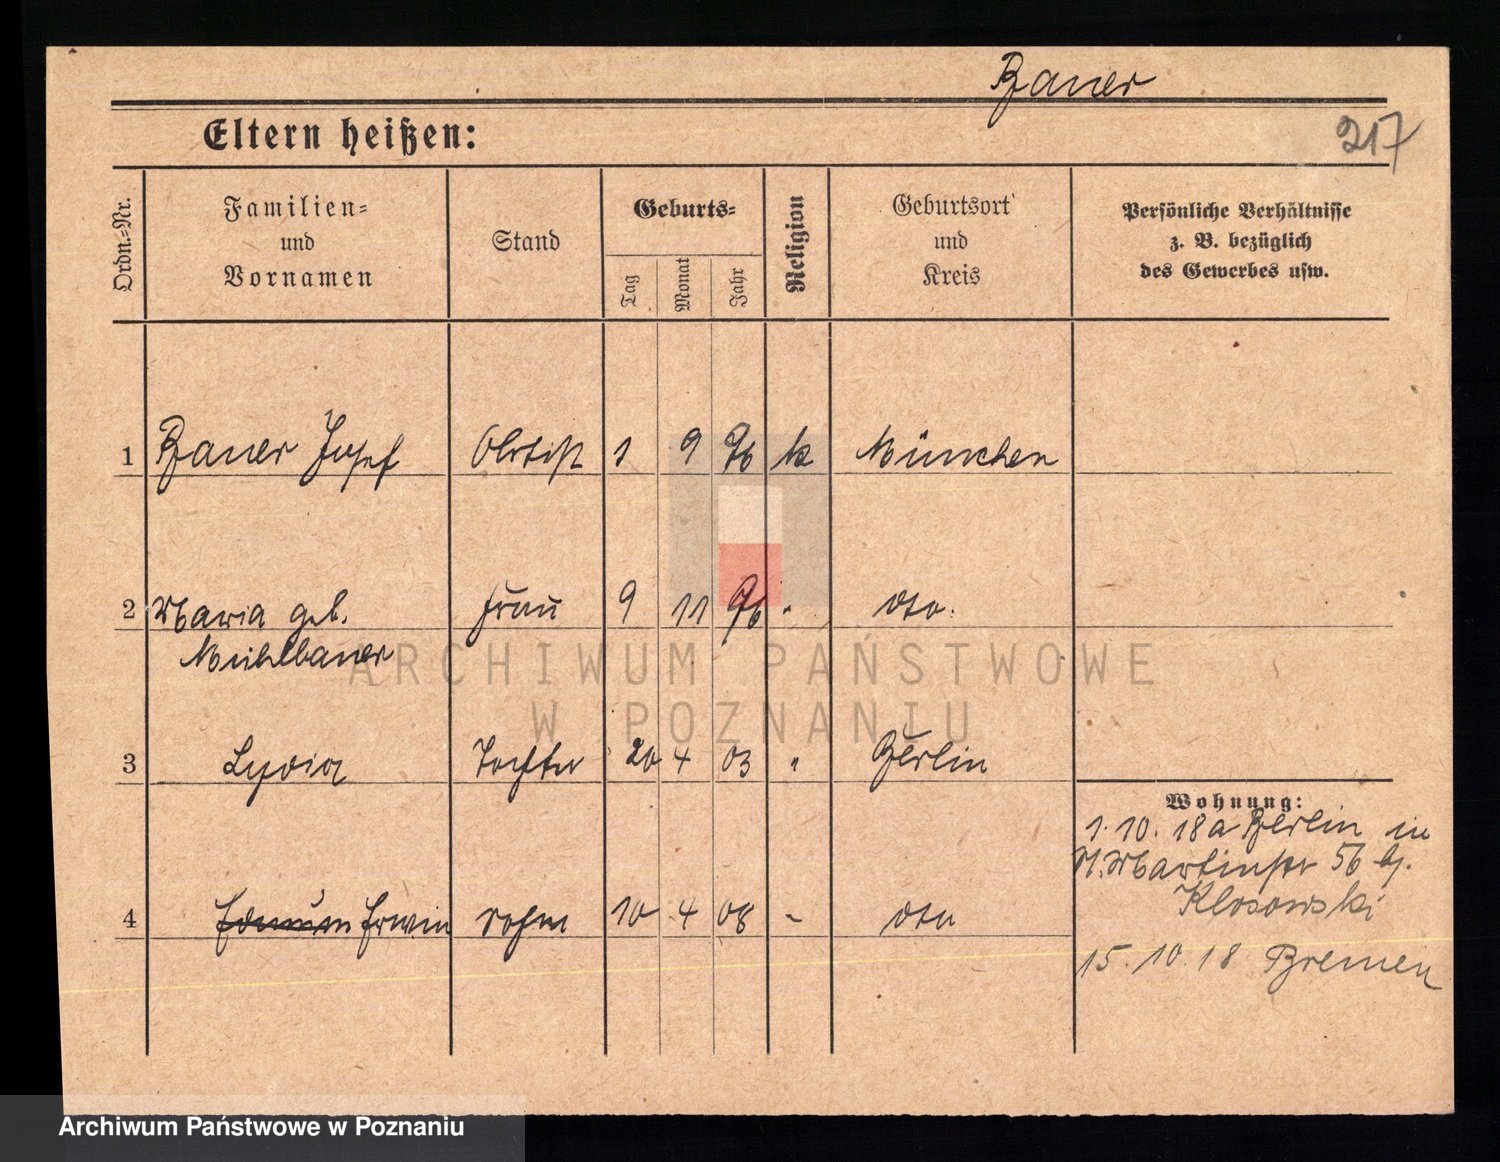 Bauer
217
Eltern heißen:
Ordn.-Nr.
Familien-
und
Vornamen
Stand
Geburts-
Tag
Monat
Jahr
Religion
Geburtsort
und
Kreis
Persönliche Verhältnisse
z. B. bezüglich
des Gewerbes usw.
1 Bauer Josef 1 9 76 k München
2 Maria geb. Frau 9 11 76 " dto.
Mühlbauer
3 Lydia Tochter 20 4 03 " Berlin
4 Edmund Erwin Sohn 10 4 08 " dto
Wohnung:
1. 10. 18 a Berlin in
St. Martinstr 56 bj.
Klosowski
15. 10. 18 Bremen
ARCHIWUM PAŃSTWOWE
W POZNANIU
Archiwum Państwowe w Poznaniu